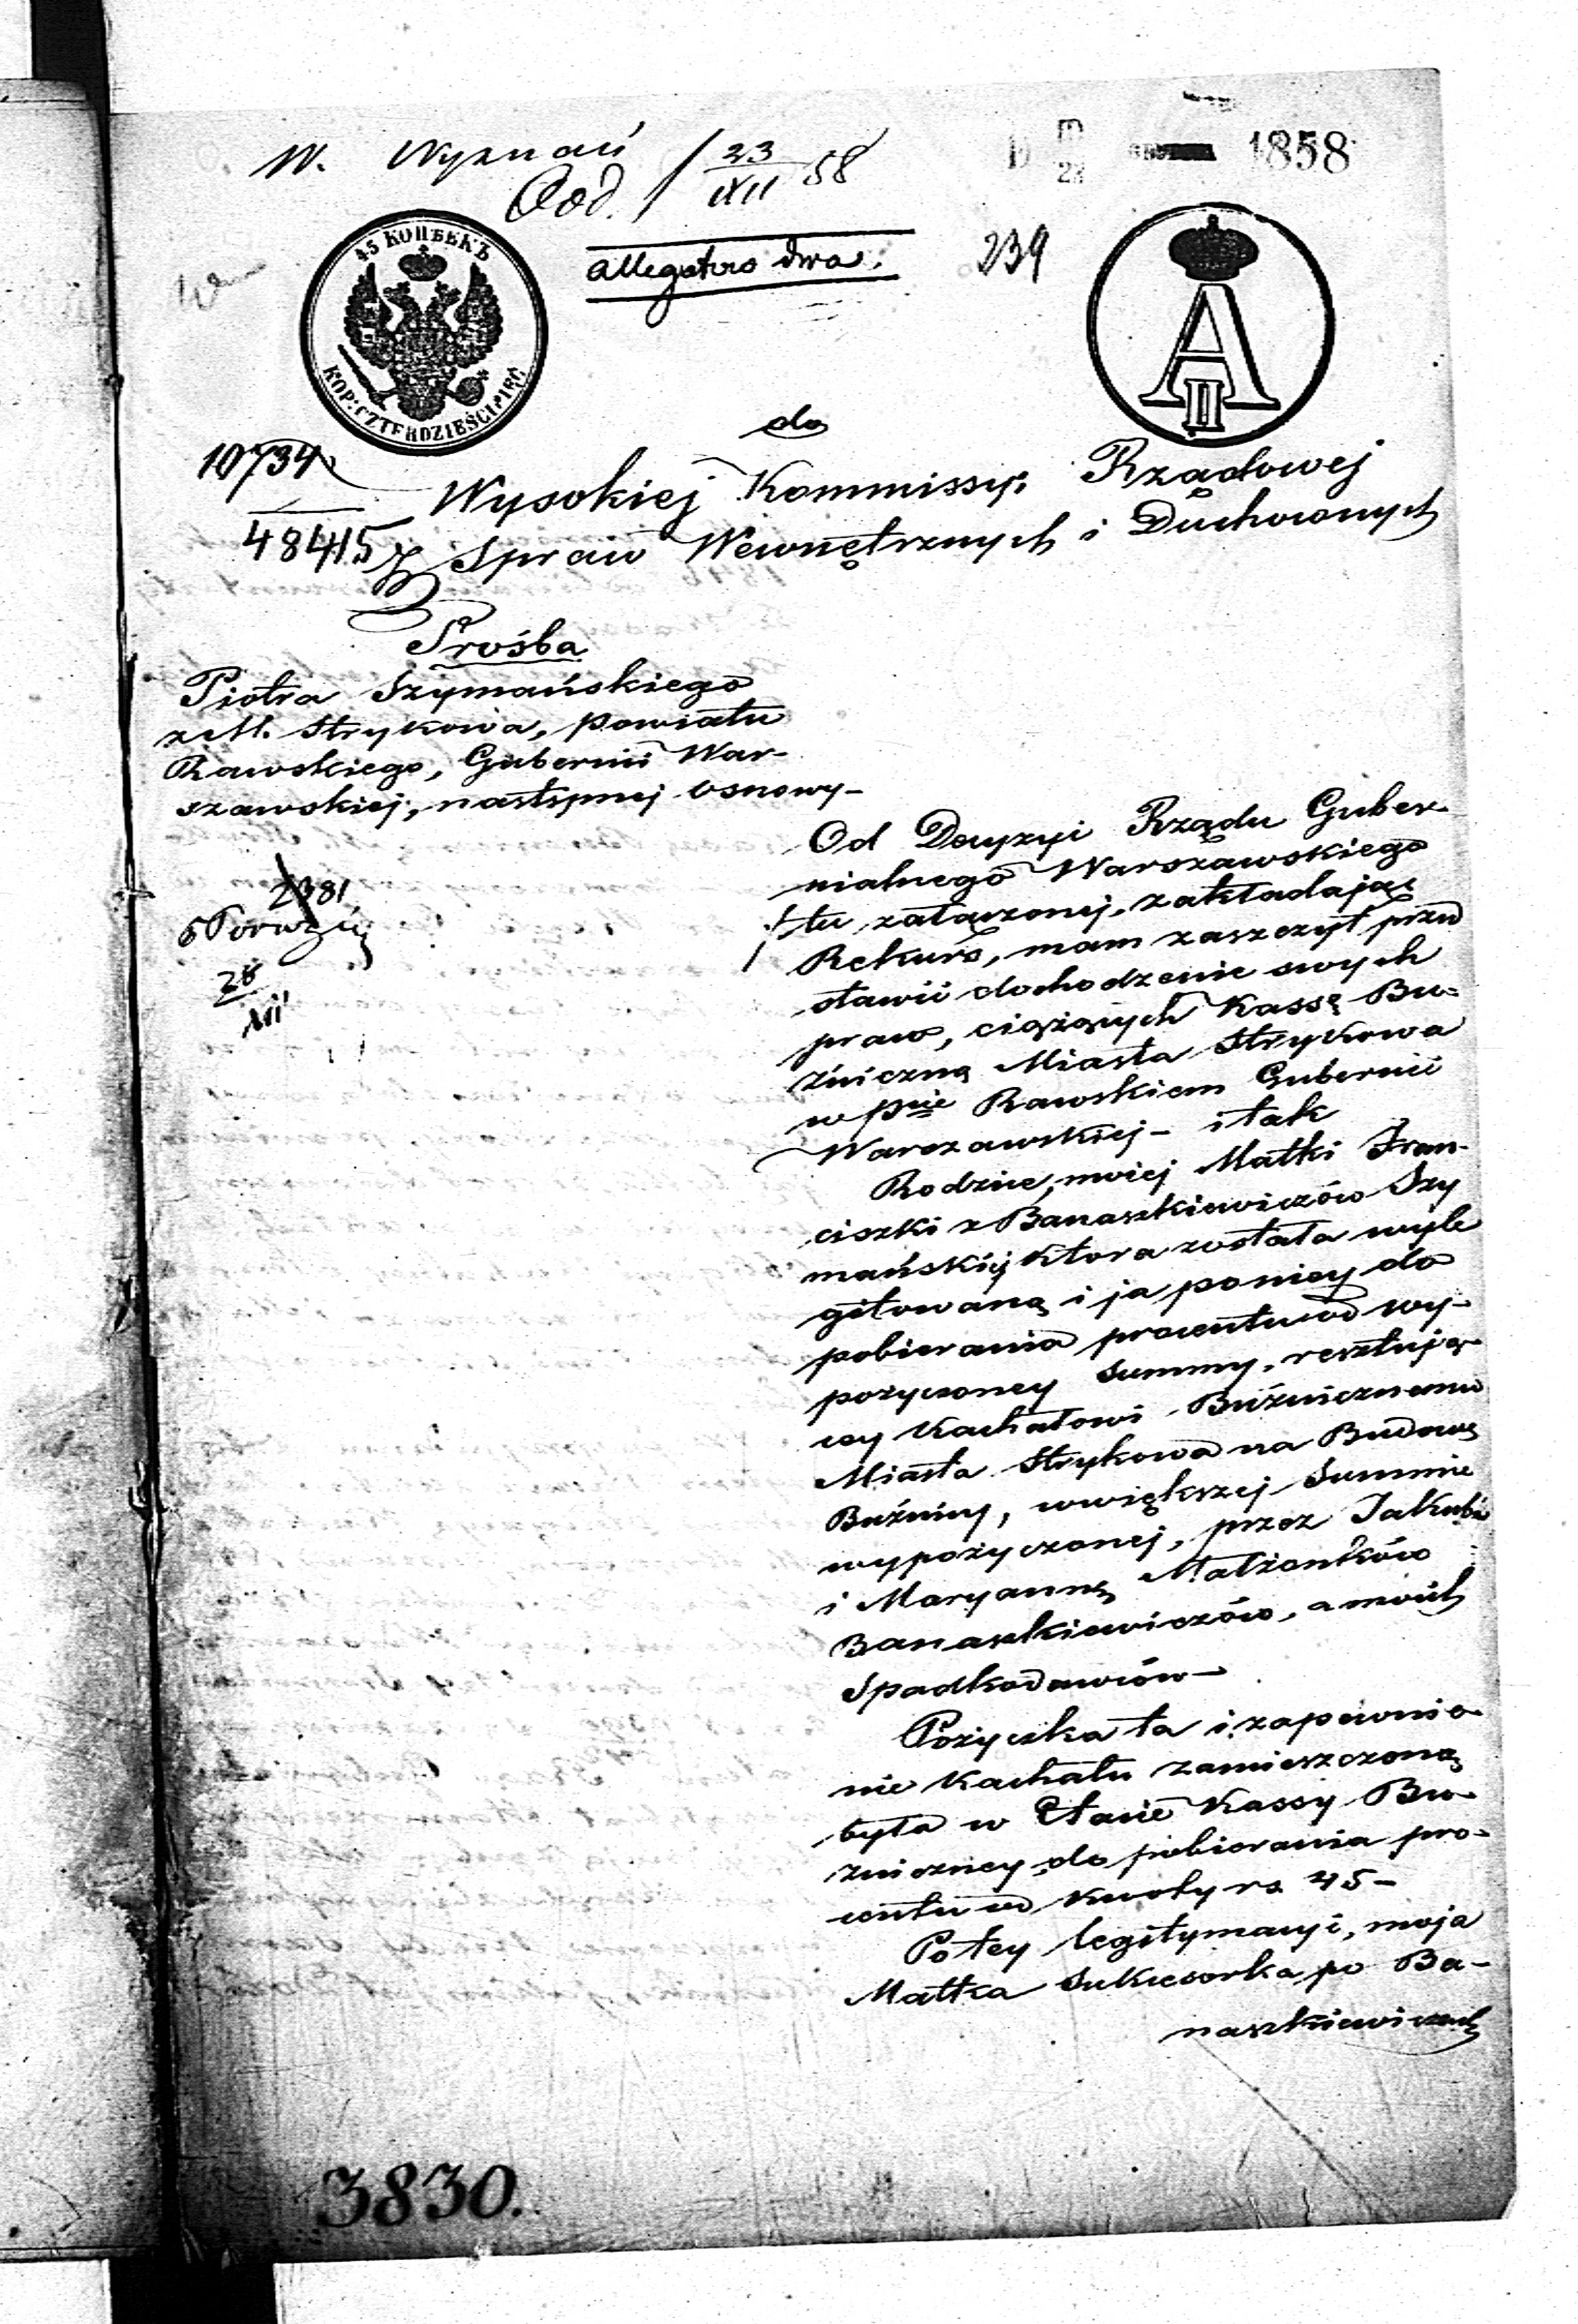 W. Wyznań
Pod. / 23/XII 58
1858
45 КОПѢЕКЪ
KOP: CZTERDZIEŚCI PIĘĆ
allegatów dwa.
239
A II
do
10734
48415
Wysokiej Kommissyi Rządowej
Spraw Wewnętrznych i Duchownych
Prośba
Piotra Szymańskiego
z M. Strykowa, powiatu
Rawskiego, Gubernii War-
szawskiej, następnej osnowy-
2381
28/XII
Od Decyzyi Rządu Guber-
nialnego Warszawskiego
tu załączonej, zakładając
Rekurs, mam zaszczyt przed
stawić dochodzenie swych
praw, ciążących Kassę Bu-
źniczną Miasta Strykowa
w Pcie Rawskiem Gubernii
Warszawskiej - i tak
Rodzice, moiej Matki Fran-
ciszki z Banaszkiewiczów Szy
mańskiéj która została wyle
gitowaną i ja po niey do
pobierania procentu od wy-
pożyczoney Summy, resztują-
cey Kachałowi Buźnicznemu
Miasta Strykowa na Budowę
Buźnicy, w większej Summie
wypożyczonej, przez Jakuba
i Maryannę Małżonków
Banaszkiewiczów, a moich
Spadkodawców-
Pożyczka ta i zapewnie-
nie Kachału zamieszczoną
była w Etacie Kassy Bu-
źniczney do pobierania pro-
centu od kwoty rs 45-
Po tey legitymacyi, moja
Matka Sukcesorka po Ba-
naszkiewiczach
3830.